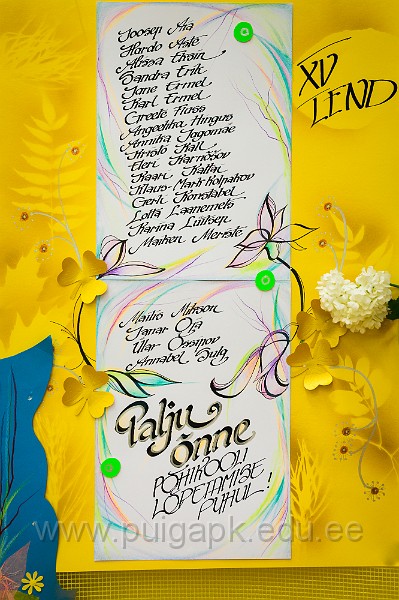 Joosep Aia
Hardo Aste
Alissa Eksin
Sandra Erik
Jane Ermel
Karl Ermel
Greete Fuss
Angeelika Hingus
Annika Jagomäe
Kristo Kall
Elery Karnõšov
Kaari Kattai
Klaus-Mark Kolpakov
Gerli Konstabel
Lotta Laanemets
Karina Luitsen
Maiken Meriste
XV
LEND
Mailis Mitson
Janar Oja
Ülar Ossipov
Annabel Sulg
Palju
õnne
PÕHIKOOLI
LÕPETAMISE
PUHUL!
www.puigapk.edu.ee